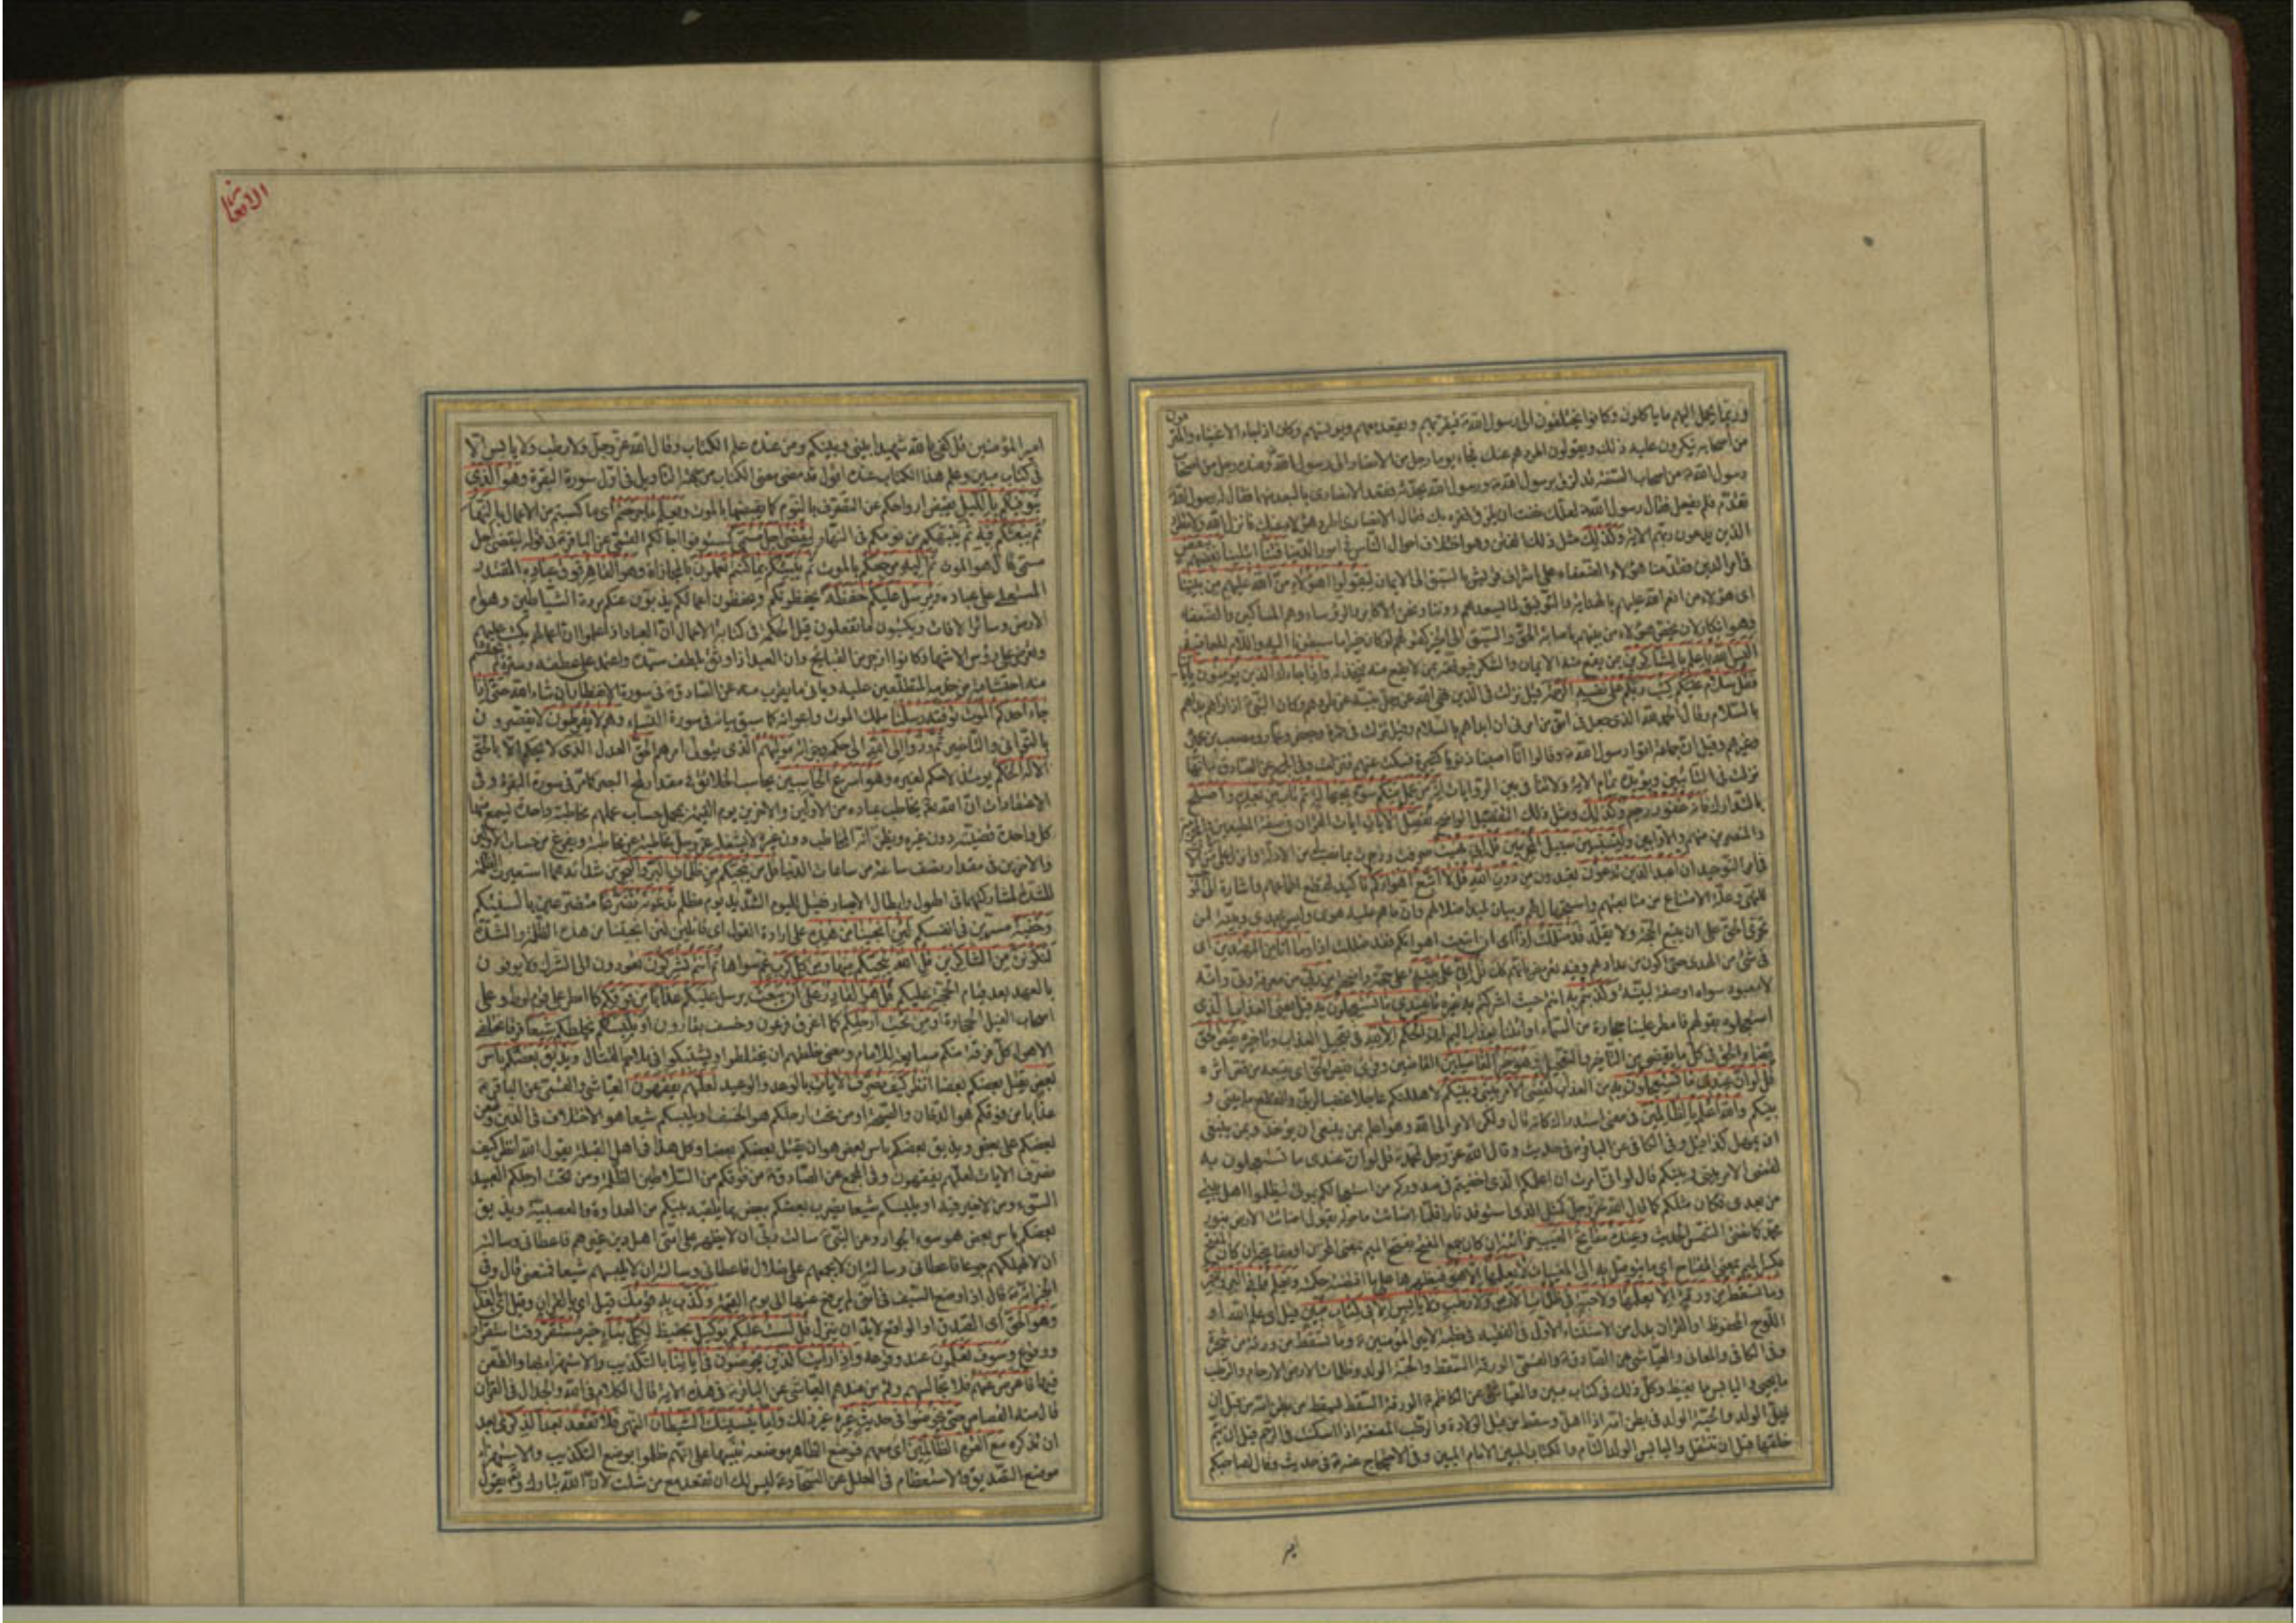 وربما يحمل اليهم ما ياكلون وكانوا يختلفون الى رسول الله فيقربهم ويقعد معهم ويونسهم وكان اذا جاء الاغنياء والمترفون
من اصحابه ينكرون عليه ذلك ويقولون اطردهم عنك فجاء يوما رجل من الانصار الى رسول الله وعنده رجل من اصحاب
رسول الله من اصحاب الصفة قد لزق برسول الله ورسول الله يحدثه فقعد الانصارى بالبعد منهما فقال له رسول الله
تقدم فلم يفعل فقال رسول الله لعلك خفت ان يلزق فقره بك فقال الانصارى اطرد هؤلاء عنك فانزل الله ولا تطرد
الذين يدعون ربهم الاية وكذلك مثل ذلك الفتن وهو اختلاف احوال الناس فى امور الدنيا فتنا ابتلينا بعضهم ببعض
فى امر الدين فقدمنا هؤلاء الضعفاء على اشراف قريش بالسبق الى الايمان ليقولوا اهؤلاء من الله عليهم من بيننا
اى هؤلاء من انعم الله عليهم بالهداية والتوفيق لما يسعدهم دوننا ونحن الاكابر والرؤساء وهم المساكين والضعفاء
وهو انكار لان يخص هؤلاء من بينهم باصابة الحق والسبق الى الخير كقولهم لو كان خيرا ما سبقونا اليه واللام للعاقبة
اليس الله باعلم بالشاكرين بمن يقع منه الايمان والشكر فيوفقه وبمن لا يقع منه فيخذله واذا جاءك الذين يؤمنون باياتنا
فقل سلام عليكم كتب ربكم على نفسه الرحمة قيل نزلت فى الذين نهى الله عز وجل نبيه عن طردهم وكان النبى اذا راهم بداهم
بالسلام وقال الحمد لله الذى جعل فى امتى من امرنى ان ابداهم بالسلام وقيل نزلت فى حمزة وجعفر وعمار ومصعب بن عمير
وغيرهم وقيل ان جماعة اتوا رسول الله وقالوا انا اصبنا ذنوبا كثيرة فسكت عنهم فنزلت وفى المجمع عن الصادق انها
نزلت فى التائبين ويؤيده تمام الاية ولا تنافى بين الروايات انه من عمل منكم سوءا بجهالة ثم تاب من بعده واصلح
بالتدارك فانه غفور رحيم وكذلك ومثل ذلك التفصيل الواضح نفصل الايات ايات القران فى صفة المطيعين والمجرمين
والمصرين منهم والاوابين ولتستبين سبيل المجرمين قل انى نهيت صرفت وزجرت بما نصبت من الادلة وانزل على من الايات
فى امر التوحيد ان اعبد الذين تدعون تعبدون من دون الله قل لا اتبع اهواءكم تاكيد لقطع اطماعهم واشارة الى الموجب
للنهى وعلة الامتناع عن متابعتهم واستجهال لهم وبيان لمبدء ضلالهم وان ما هم عليه هوى وليس بهدى وتنبيه لمن
تحرى الحق على ان يتبع الحجة ولا يقلد قد ضللت اذا اى ان اتبعت اهواءكم فقد ضللت اذا وما انا من المهتدين اى
فى شئ من الهدى حتى اكون من عدادهم وفيه تعريض بانهم كذلك قل انى على بينة على حجة واضحة من ربى من معرفة ربى وانه
لا معبود سواه او صفة لبينة وكذبتم به انتم حيث اشركتم به غيره ما عندى ما تستعجلون به قيل يعنى العذاب الذى
استعجلوه بقولهم فامطر علينا حجارة من السماء او ائتنا بعذاب اليم ان الحكم الا لله فى تعجيل العذاب وتاخيره يقص الحق
يقضى الحق فى كل ما يقضى من التاخير والتعجيل وهو خير الفاصلين القاضين وقرئ يقص الحق اى يتبعه من قص اثره
قل لو ان عندى ما تستعجلون به من العذاب لقضى الامر بينى وبينكم لاهلكتكم عاجلا غضبا لربى وانقطع ما بينى و
بينكم والله اعلم بالظالمين فى معنى استدراك كانه قال ولكن الامر الى الله وهو اعلم بمن ينبغى ان يؤخذ وبمن ينبغى
ان يمهل كذا قيل وفى الكافى عن الباقر فى حديث وقال الله عز وجل لمحمد قل لو ان عندى ما تستعجلون به
لقضى الامر بينى وبينكم قال لو انى امرت ان اعلمكم الذى اخفيتم فى صدوركم من استعجالكم بموتى لتظلموا اهل بيتى
من بعدى فكان مثلكم كما قال الله عز وجل كمثل الذى استوقد نارا فلما اضاءت ما حوله يقول اضاءت الارض بنور
محمد كما تضئ الشمس الحديث وعنده مفاتح الغيب خزائنه ان كان جمع المفتح بفتح الميم بمعنى المخزن او مفاتيحه ان كان جمع المفتح
بكسر الميم بمعنى المفتاح اى ما يتوصل به الى المغيبات لا يعلمها الا هو فيظهرها على ما اقتضته حكمته ويعلم ما فى البر والبحر
وما تسقط من ورقة الا يعلمها ولا حبة فى ظلمات الارض ولا رطب ولا يابس الا فى كتاب مبين قيل اى علم الله او
اللوح المحفوظ او القران بدل من الاستثناء الاول فى الفقيه فى خطبة لامير المؤمنين وما تسقط من ورقة من شجرة
وفى الكافى والمعانى والعياشى عن الصادق والقمى الورقة السقط والحبة الولد وظلمات الارض الارحام والرطب
ما يحيى واليابس ما يغيض وكل ذلك فى كتاب مبين والعياشى عن الكاظم الورقة السقط يسقط من بطن امه من قبل ان
يهل الولد والحبة الولد فى بطن امه اذا اهل وسقط من قبل الولادة والرطب المضغة اذا اسكنت فى الرحم قبل ان يتم
خلقها قبل ان تنتقل واليابس الولد التام والكتاب المبين الامام المبين وفى الاحتجاج عنه فى حديث وقال لصاحبكم
الانعام
امير المؤمنين قل كفى بالله شهيدا بينى وبينكم ومن عنده علم الكتاب وقال الله عز وجل ولا رطب ولا يابس الا
فى كتاب مبين وعلم هذا الكتاب عنده اقول قد مضى معنى الكتاب من جهة التاويل فى اول سورة البقرة وهو الذى
يتوفيكم بالليل يقبض ارواحكم عن التصرف بالنوم كما يقبضها بالموت ويعلم ما جرحتم اى ما كسبتم من الاعمال بالنهار
ثم يبعثكم فيه ثم ينبهكم من نومكم فى النهار ليقضى اجل مسمى لتستوفوا اجالكم القمى عن الباقر فى قوله ليقضى اجل
مسمى قال هو الموت ثم اليه مرجعكم بالموت ثم ينبئكم بما كنتم تعملون بالمجازاة وهو القاهر فوق عباده المقتدر
المستعلى على عباده ويرسل عليكم حفظة يحفظونكم ويحفظون اعمالكم يذبون عنكم مردة الشياطين وهوام
الارض وسائر الافات ويكتبون ما تفعلون قيل الحكمة فى كتابة الاعمال ان العباد اذا علموا ان اعمالهم يكتب عليهم
وتعرض على رؤس الاشهاد كانوا ازجر عن القبائح وان العبد اذا وثق بلطف سيده واعتمد على عطفه وستره لم يحتشم
منه احتشامه من خدمه المتطلعين عليه وياتى ما يقرب منه عن الصادق فى سورة الانفطار ان شاء الله حتى اذا
جاء احدكم الموت توفته رسلنا ملك الموت واعوانه كما سبق بيانه فى سورة النساء وهم لا يفرطون لا يقصرون
بالتوانى والتاخير ثم ردوا الى الله الى حكمه وجزائه موليهم الذى يتولى امرهم الحق العدل الذى لا يحكم الا بالحق
الا له الحكم يومئذ لا حكم لغيره وهو اسرع الحاسبين يحاسب الخلائق فى مقدار لمح البصر كما مر فى سورة البقرة وفى
الاعتقادات ان الله تعالى يخاطب عباده من الاولين والاخرين يوم القيمة بمجمل حساب عملهم مخاطبة واحدة يسمع منها
كل واحد قضيته دون غيره ويظن انه المخاطب دون غيره لا يشغله عز وجل مخاطبة عن مخاطبة ويفرغ من حساب الاولين
والاخرين فى مقدار نصف ساعة من ساعات الدنيا قل من ينجيكم من ظلمات البر والبحر من شدائدهما استعيرت الظلمة
للشدة لمشاركتهما فى الهول وابطال الابصار فقيل لليوم الشديد يوم مظلم تدعونه تضرعا متضرعين بالسنتكم
وخفية مسرين فى انفسكم لئن انجيتنا من هذه على ارادة القول اى قائلين لئن انجيتنا من هذه الظلمة والشدة
لنكونن من الشاكرين قل الله ينجيكم منها ومن كل كرب غم سواها ثم انتم تشركون تعودون الى الشرك ولا يوفون
بالعهد بعد قيام الحجة عليكم قل هو القادر على ان يبعث يرسل عليكم عذابا من فوقكم كما امطر على قوم لوط وعلى
اصحاب الفيل الحجارة او من تحت ارجلكم كما اغرق فرعون وخسف بقارون او يلبسكم يخلطكم شيعا فرقا مختلفى
الاهواء كل فرقة منكم مشايعة لامام ومعنى خلطهم ان يختلطوا ويشتبكوا فى ملاحم القتال ويذيق بعضكم باس
بعض يقتل بعضكم بعضا انظر كيف نصرف الايات بالوعد والوعيد لعلهم يفقهون العياشى والقمى عن الباقر
عذابا من فوقكم هو الدخان والصيحة او من تحت ارجلكم هو الخسف او يلبسكم شيعا هو الاختلاف فى الدين وطعن
بعضكم على بعض ويذيق بعضكم باس بعض هو ان يقتل بعضكم بعضا وكل هذا فى اهل القبلة يقول الله انظر كيف
نصرف الايات لعلهم يفقهون وفى المجمع عن الصادق من فوقكم من السلاطين الظلمة ومن تحت ارجلكم العبيد
السوء ومن لا خير فيه او يلبسكم شيعا يضرب بعضكم ببعض بما يلقيه بينكم من العداوة والعصبية ويذيق
بعضكم باس بعض هو سوء الجوار وعن النبى سالت ربى ان لا يظهر على امتى اهل دين غيرهم فاعطانى وسالته
ان لا يهلكهم جوعا فاعطانى وسالته ان لا يجمعهم على ضلال فاعطانى وسالته ان لا يلبسهم شيعا فمنعنى قال وفى
الخبر انه قال اذا وضع السيف فى امتى لم يرفع عنها الى يوم القيمة وكذب به قومك قيل اى بالقران وقيل اى بالعذاب
وهو الحق اى الصدق او الواقع لابد ان ينزل قل لست عليكم بوكيل بحفيظ لكل نباء خبر مستقر وقت استقرار
ووقوع وسوف تعلمون عند وقوعه واذا رايت الذين يخوضون فى اياتنا بالتكذيب والاستهزاء بها والطعن
فيها فاعرض عنهم فلا تجالسهم وقم من عندهم العياشى عن الباقر فى هذه الاية قال الكلام فى الله والجدال فى القران
قال منه القصاص حتى يخوضوا فى حديث غيره غير ذلك واما ينسينك الشيطان النهى فلا تقعد بعد الذكرى بعد
ان تذكره مع القوم الظالمين اى معهم فوضع الظاهر موضعه تنبيها على انهم ظلموا بوضع التكذيب والاستهزاء
موضع التصديق والاستعظام فى العلل عن السجاد ليس لك ان تقعد مع من شئت لان الله تبارك وتعالى يقول